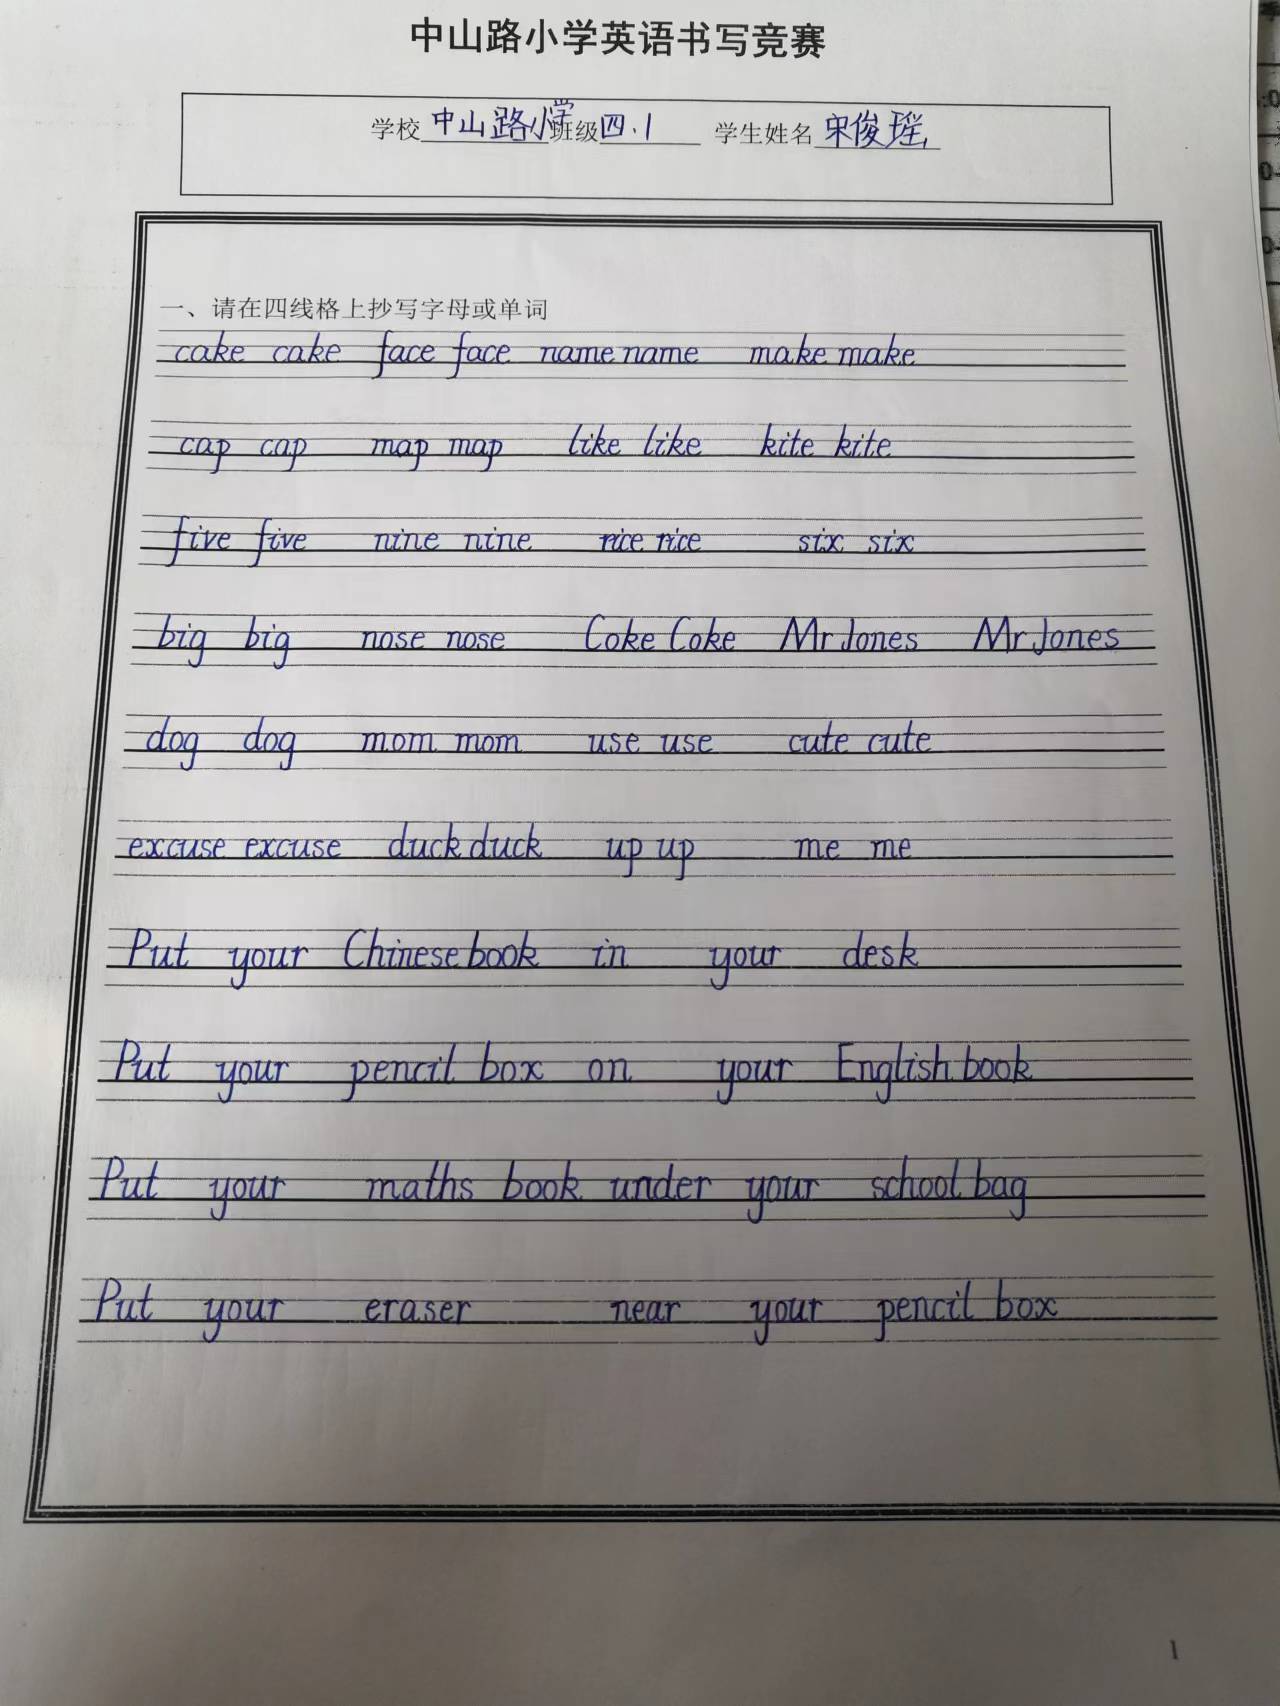 中山路小学英语书写竞赛
学校中山路小学班级四.1 学生姓名宋俊瑶
一、请在四线格上抄写字母或单词
cake cake face face name name make make
cap cap map map like like kite kite
five five nine nine rice rice six six
big big nose nose Coke Coke Mr Jones Mr Jones
dog dog mom mom use use cute cute
excuse excuse duck duck up up me me
Put your Chinese book in your desk
Put your pencil box on your English book
Put your maths book under your school bag
Put your eraser near your pencil box
1